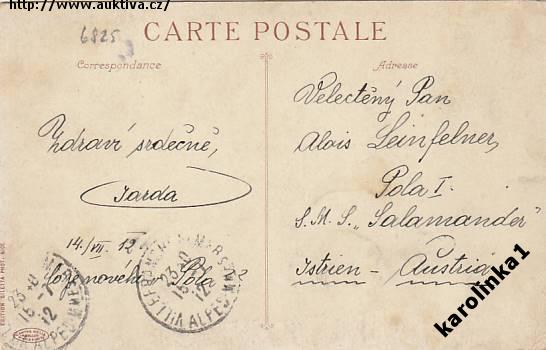 http://www.auktiva.cz/
6825
CARTE POSTALE
Correspondance
Adresse
Velectěný Pan
Alois Leinfelner,
Pola I.
S.M.S. „Salamander"
Istrien - Austria
Zdraví srdečně,
Jarda
14./VII. 12
Pola
VILLEFRANCHE
ALPES MARMES
23-0
15-7
12
karolinka1